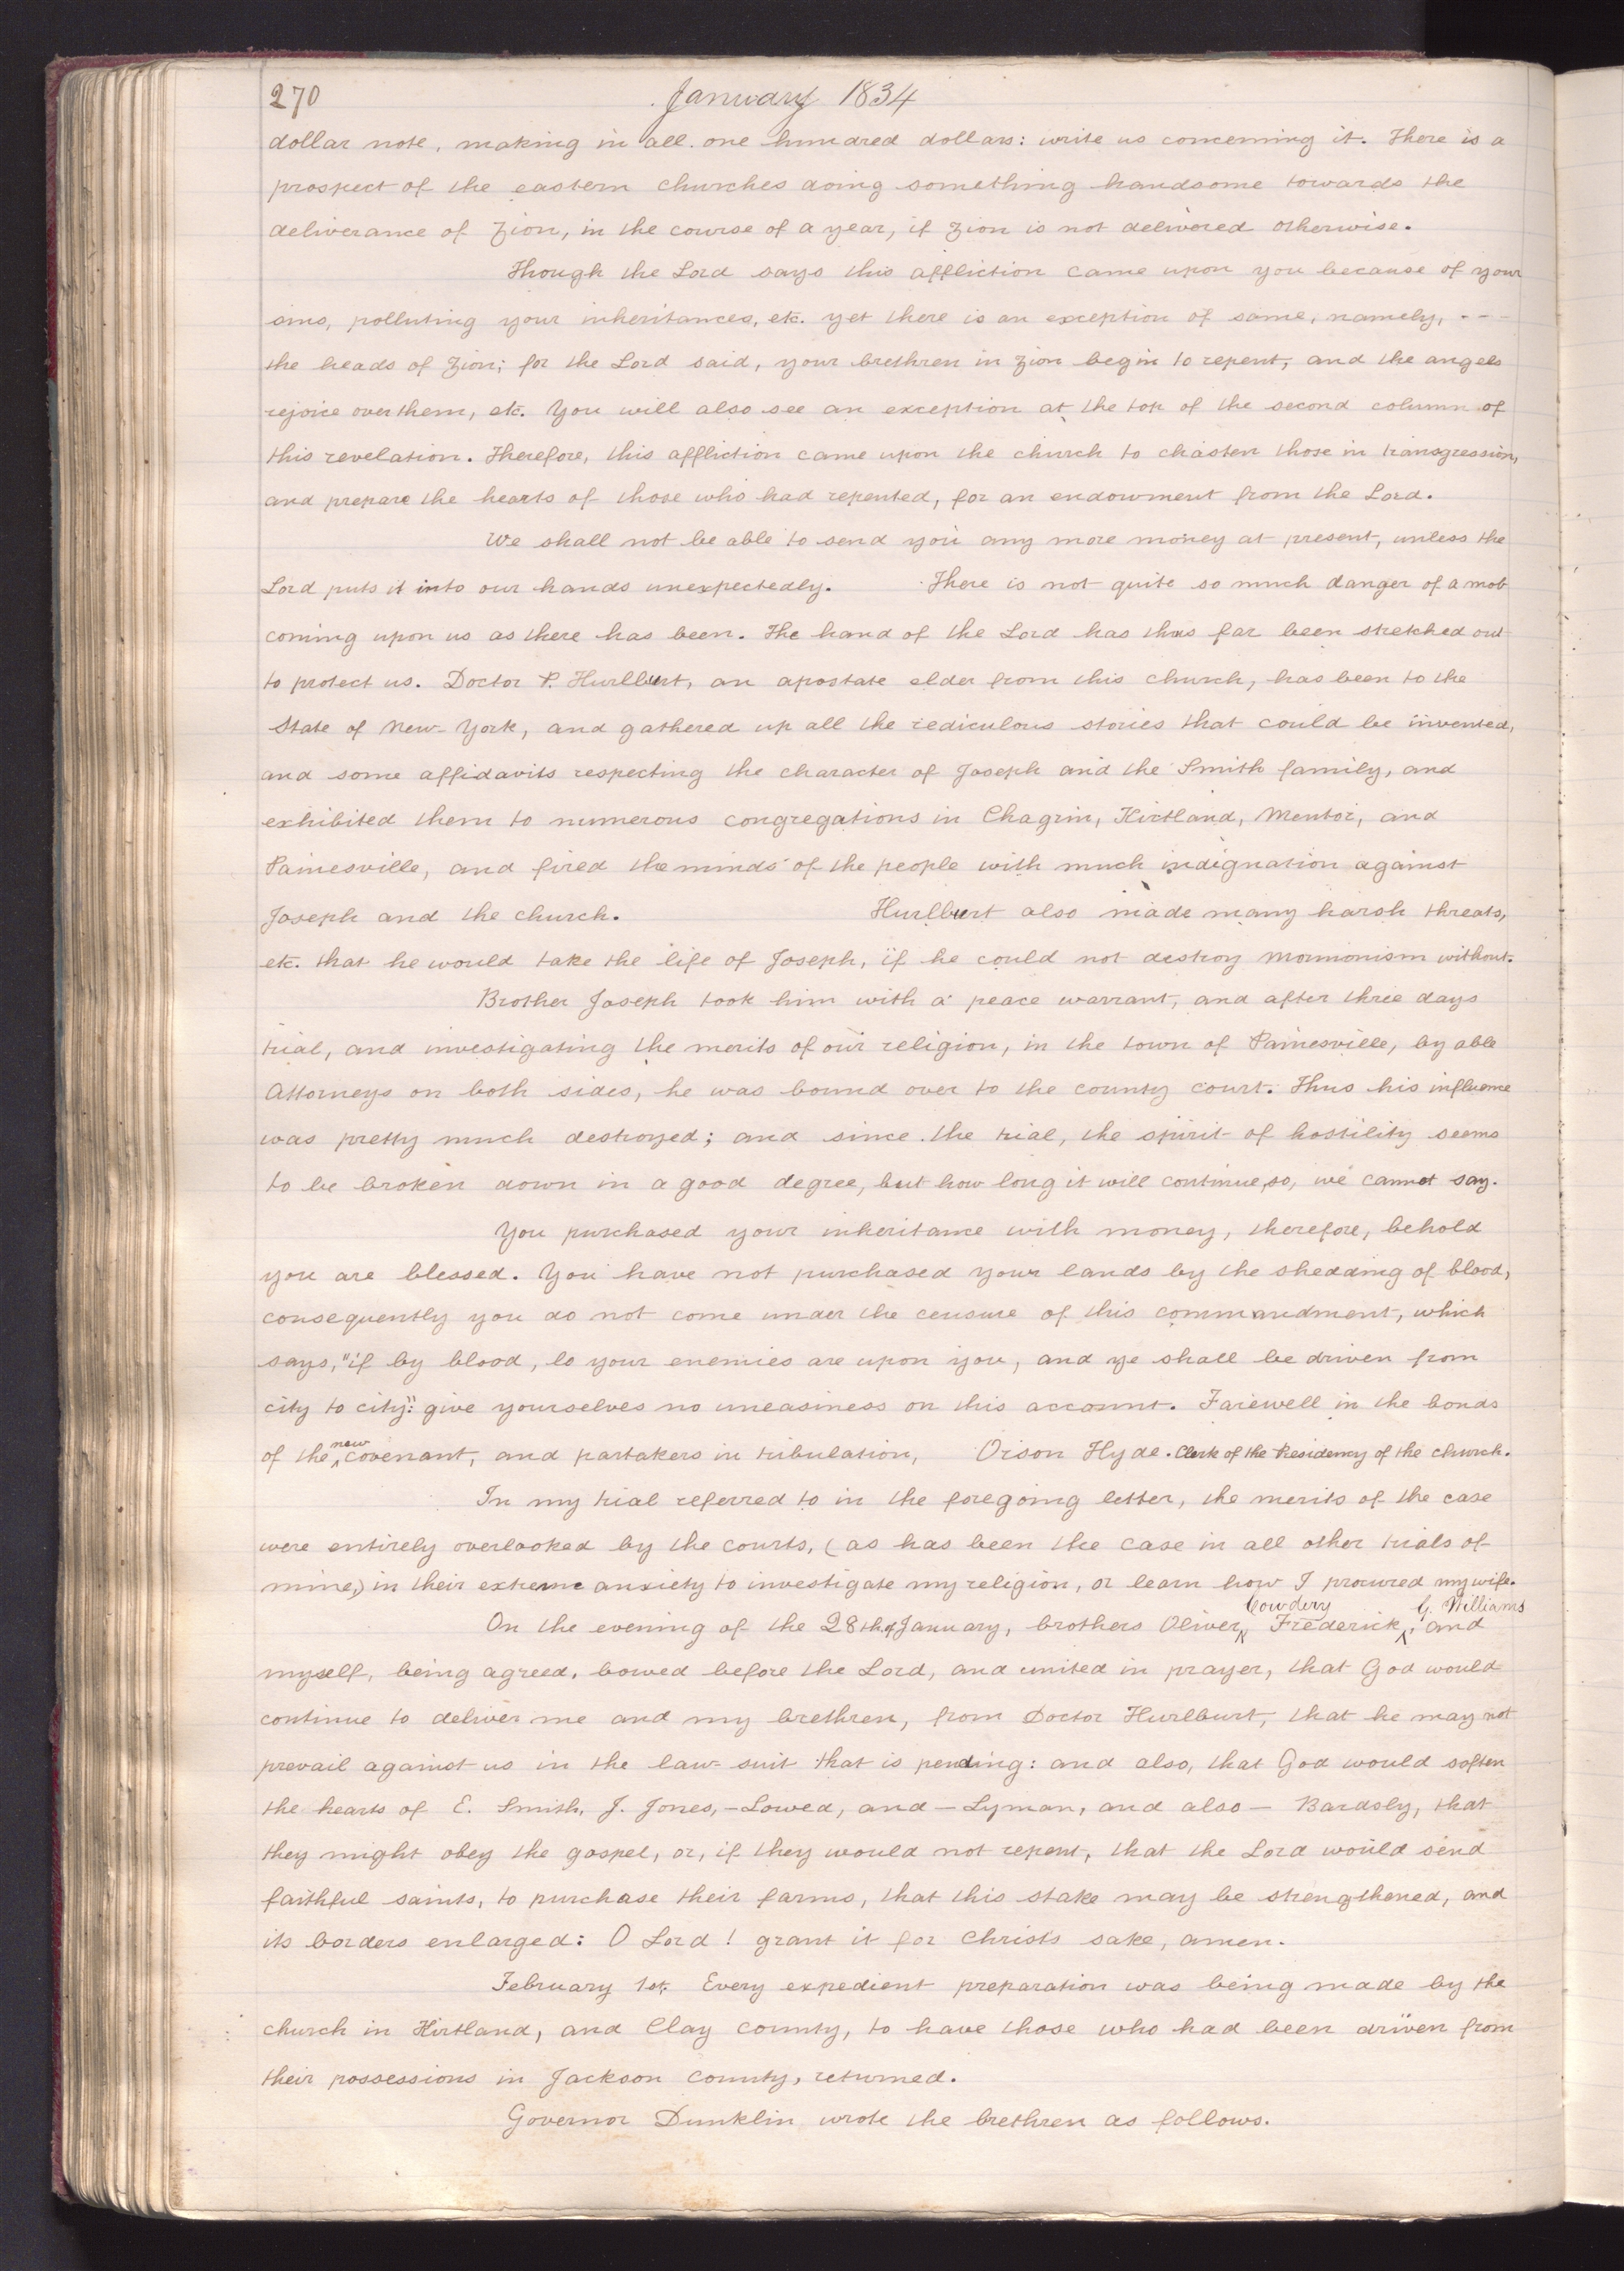 270 January 1834
dollar note, making in all one hundred dollars: write us concerning it. There is a
prospect of the eastern churches doing something handsome towards the
deliverance of Zion, in the course of a year, if Zion is not delivered otherwise.
Though the Lord says this affliction came upon you because of your
sins, polluting your inheritances, etc. yet there is an exception of some, namely, - - -
the heads of Zion; for the Lord said, your brethren in Zion begin to repent, and the angels
rejoice over them, etc. You will also see an exception at the top of the second column of
this revelation. Therefore, this affliction came upon the church to chasten those in transgression,
and prepare the hearts of those who had repented, for an endowment from the Lord.
We shall not be able to send you any more money at present, unless the
Lord puts it into our hands unexpectedly. There is not quite so much danger of a mob
coming upon us as there has been. The hand of the Lord has thus far been stretched out
to protect us. Doctor P. Hurlburt, an apostate elder from this church, has been to the
State of New-York, and gathered up all the rediculous stories that could be invented,
and some affidavits respecting the character of Joseph and the Smith family, and
exhibited them to numerous congregations in Chagrin, Kirtland, Mentor, and
Painesville, and fired the minds of the people with much indignation against
Joseph and the church. Hurlburt also made many harsh threats,
etc. that he would take the life of Joseph, if he could not destroy Mormonism without.
Brother Joseph took him with a peace warrant, and after three days
trial, and investigating the merits of our religion, in the town of Painesville, by able
Attorneys on both sides, he was bound over to the county court. Thus his influence
was pretty much destroyed; and since the trial, the spirit of hostility seems
to be broken down in a good degree, but how long it will continue so, we cannot say.
You purchased your inheritance with money, therefore, behold
you are blessed. You have not purchased your lands by the shedding of blood,
consequently you do not come under the censure of this commandment, which
says, "if by blood, lo your enemies are upon you, and ye shall be driven from
city to city": give yourselves no uneasiness on this account. Farewell in the bonds
of the new covenant, and partakers in tribulation, Orson Hyde. Clerk of the Presidency of the church.
In my trial referred to in the foregoing letter, the merits of the case
were entirely overlooked by the courts, (as has been the case in all other trials of
mine,) in their extreme anxiety to investigate my religion, or learn how I procured my wife.
On the evening of the 28th of January, brothers Oliver Cowdery Frederick G. Williams, and
myself, being agreed, bowed before the Lord, and united in prayer, that God would
continue to deliver me and my brethren, from Doctor Hurlburt, that he may not
prevail against us in the law-suit that is pending: and also, that God would soften
the hearts of E. Smith, J. Jones, – Lowed, and – Lyman, and also – Bardsly, that
they might obey the gospel, or, if they would not repent, that the Lord would send
faithful saints, to purchase their farms, that this stake may be strengthened, and
its borders enlarged: O Lord! grant it for Christs sake, amen.
February 1st. Every expedient preparation was being made by the
church in Kirtland, and Clay County, to have those who had been driven from
their possessions in Jackson County, returned.
Governor Dunklin wrote the brethren as follows.